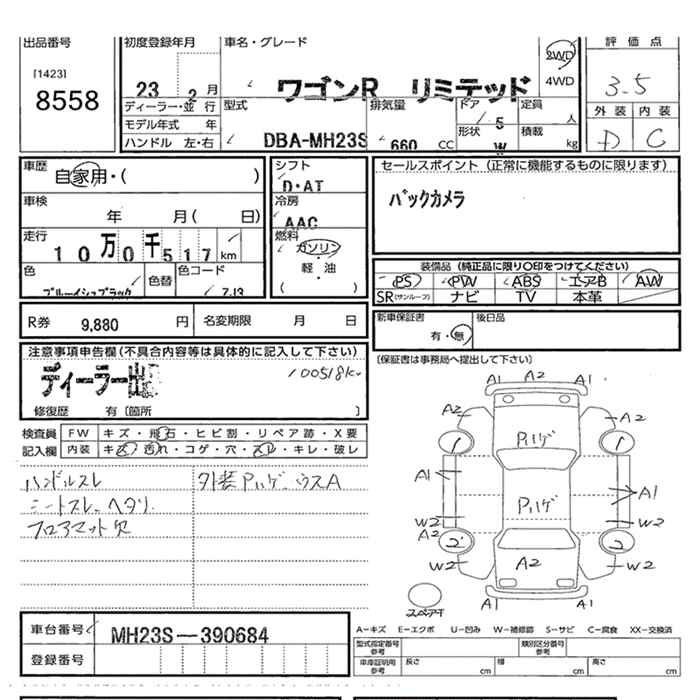 出品番号
[1423]
8558
初度登録年月
23 2 月
車名・グレード
ワゴンR リミテッド
2WD
4WD
評価点
3.5
外装 内装
D C
ディーラー・並行
モデル年式 年
ハンドル 左・右
型式
DBA-MH23S
排気量
660 CC
ドア
5
形状
W
定員
人
積載
kg
車歴
自家用・( )
車検
年 月( 日)
走行
10万0千517 km
色
ブルーイッシュブラック
色替
色コード
ZJ3
シフト
D・AT
冷房
AAC
燃料
ガソリン
軽・油
( )
セールスポイント (正常に機能するものに限ります)
バックカメラ
装備品 (純正品に限り○印をつけてください)
PS PW ABS エアB AW
SR(サンルーフ) ナビ TV 本革
R券 9,880 円
名変期限 月 日
新車保証書
有・無
後日品
(保証書は事務局へ提出して下さい)
注意事項申告欄(不具合内容等は具体的に記入して下さい)
ディーラー出
100518K
修復歴 有〔箇所 〕
検査員
記入欄
FW キズ・飛石・ヒビ割・リペア跡・X要
内装 キズ・汚れ・コゲ・穴・スレ・キレ・破レ
ハンドルスレ
シートスレ、ヘタリ
フロアマット欠
外装Pハゲ、ウスA
A1 A2 A1
A2 A2
1 Pハゲ 1
A1 Pハゲ A1
W2 W2
A2
2 2
W2 A2 W2
A1 A1
スペアT
車台番号 MH23S-390684
登録番号
A-キズ E-エクボ U-凹み W-補修跡 S-サビ C-腐食 XX-交換済
型式指定番号
参考
類別区分番号
参考
車庫証明用
参考
長さ cm
幅 cm
高さ cm